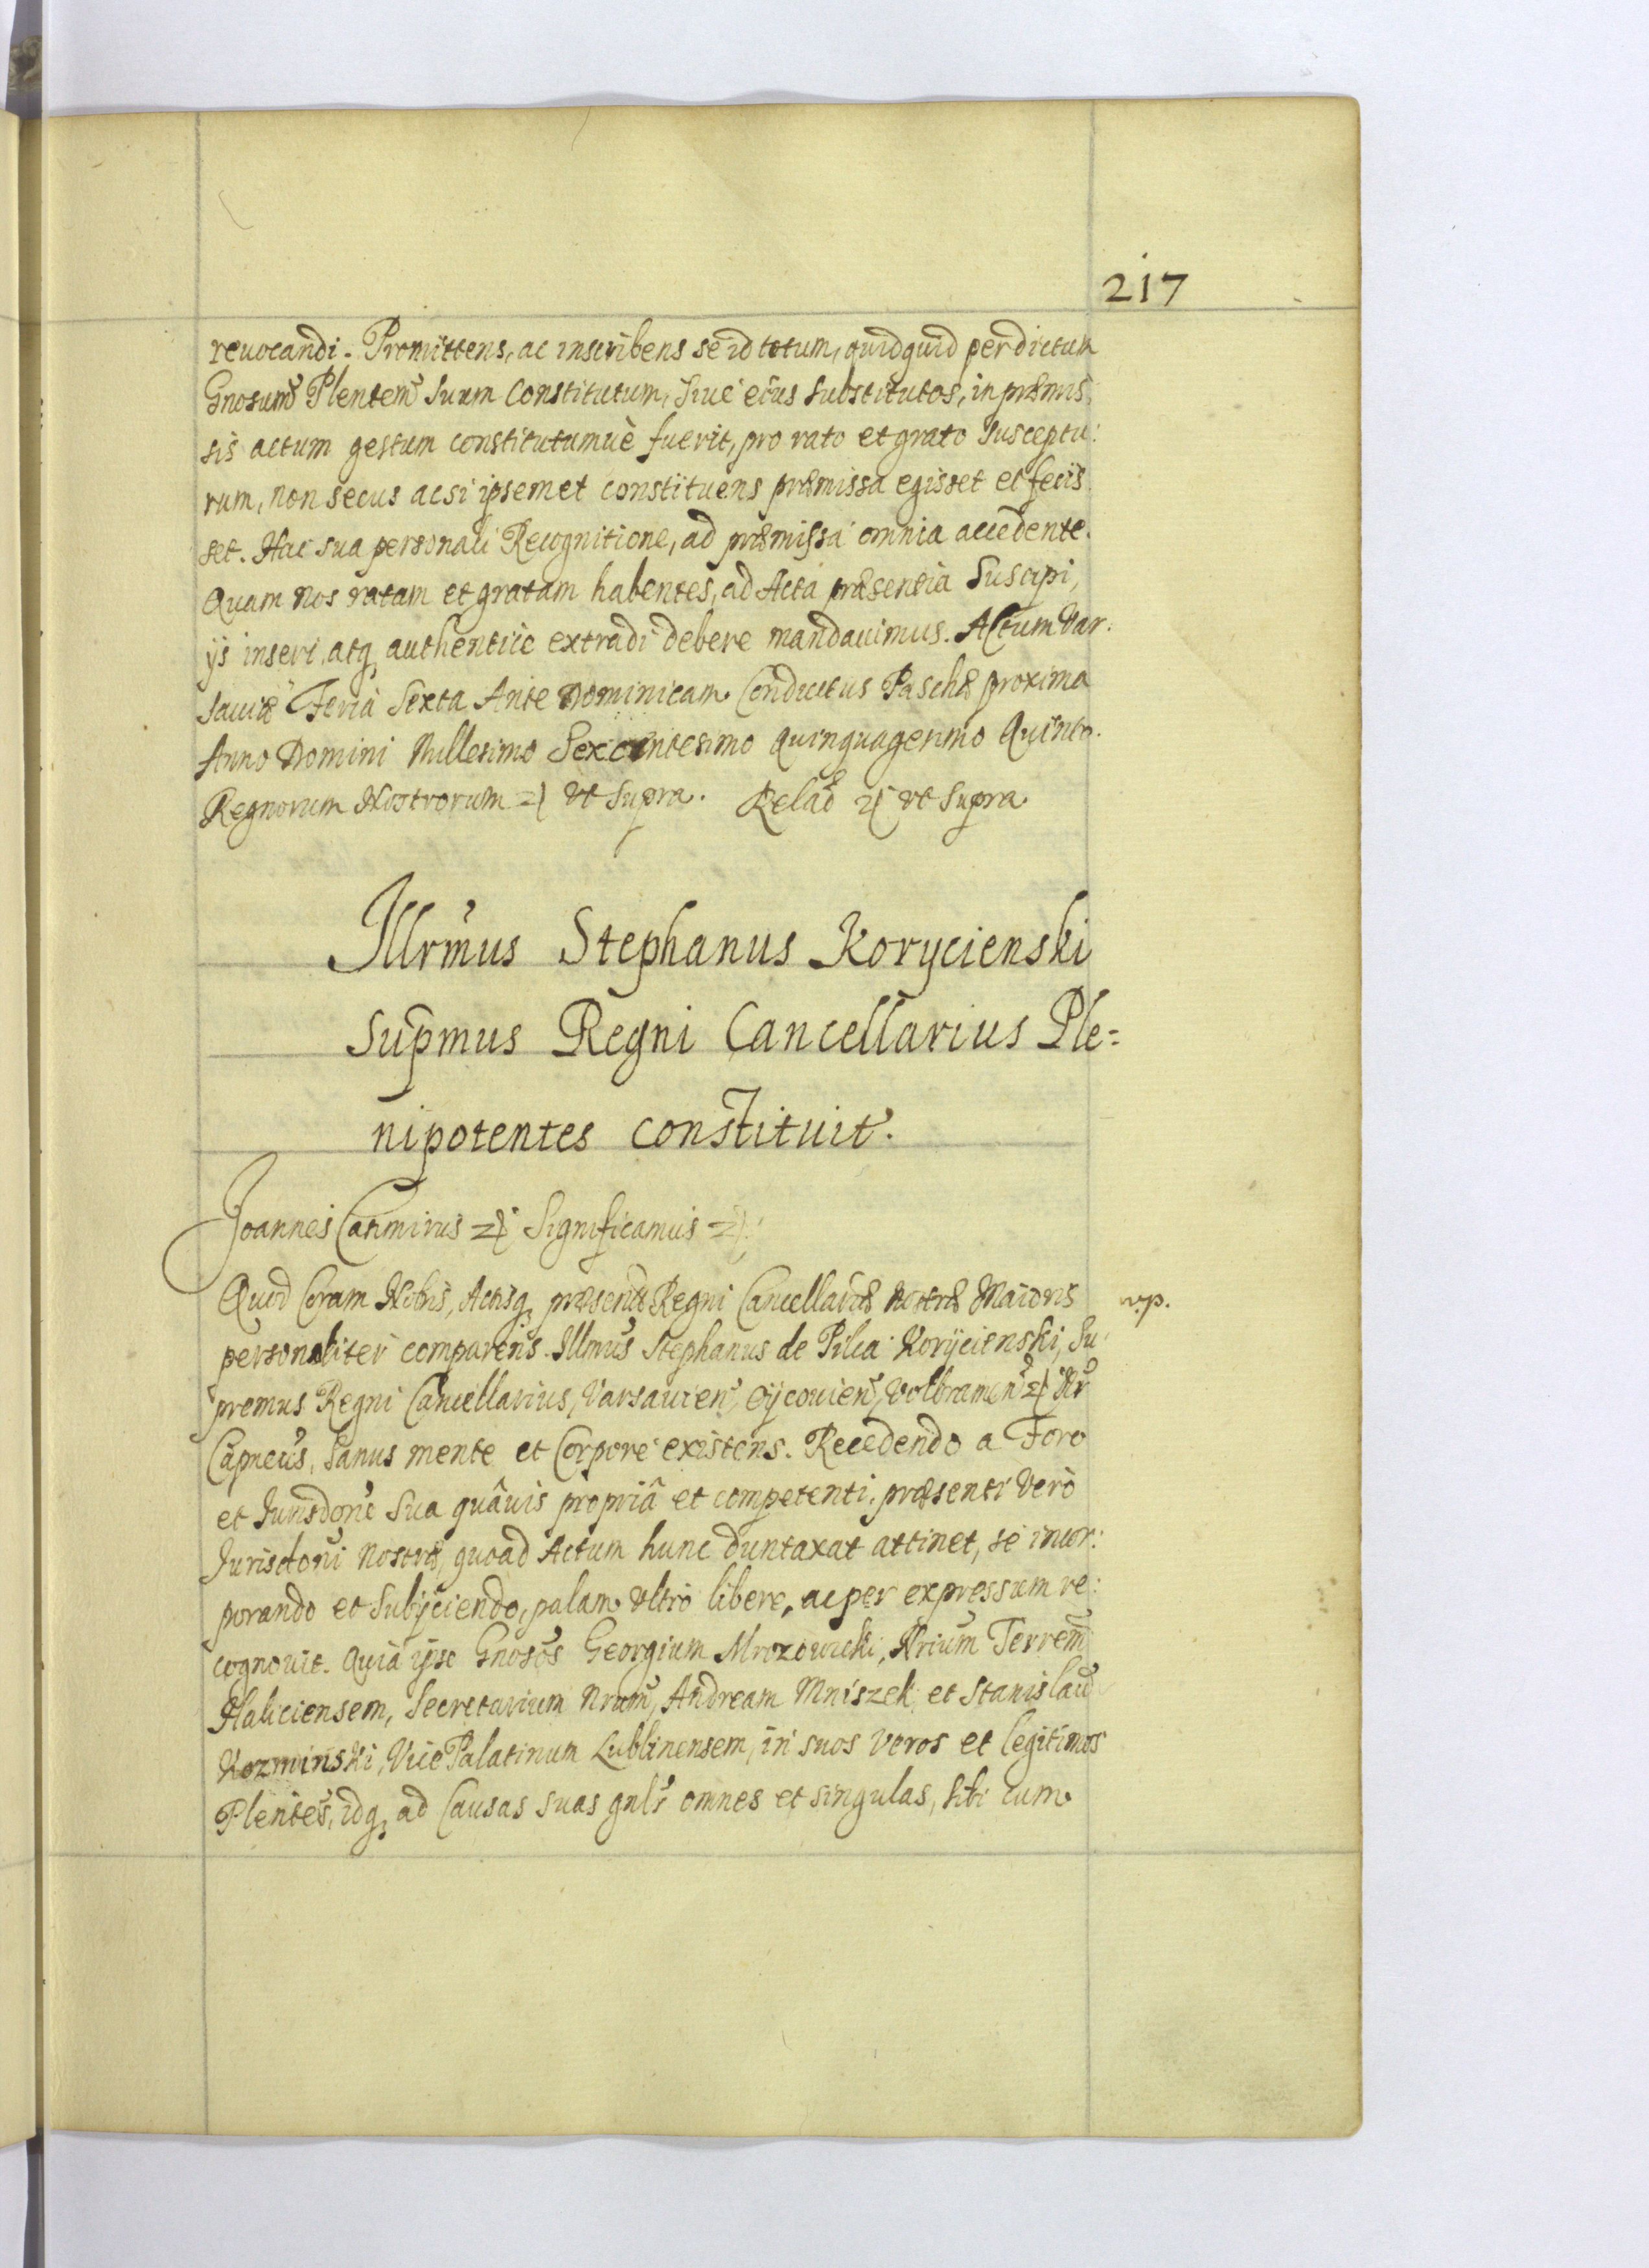 217
reuocandi. Promittens, ac inscribens se id totum, quidquid per dictum
Gnosum Plentem suum Constitutum, siue eius substitutos, in præmis:
sis actum gestum constitutumuè fuerit, pro rato et grato susceptu:
rum, non secus ac si ipsemet constituens præmissa egisset et fecis
set. Hac sua personali Recognitione, ad præmissa omnia accedente.
Quam nos ratam et gratam habentes, ad Acta præsentia Suscipi,
ijs inseri, atq authentice extradi debere mandauimus. Actum Var:
sauiæ Feria Sexta Ante Dominicam Conductus Paschæ proxima
Anno Domini Millesimo Sexcentesimo Quinquagesimo Quinto.
Regnorum Nostrorum ut supra. Relaõ ut supra
Illrmus Stephanus Korycienski
Supmus Regni Cancellarius Ple=
nipotentes constituit.
Joannes Casimirus Significamus
Quod Coram Nobis, Actisq præsentib Regni Cancellariæ nostræ Maioris
v.p.
personaliter comparens Illmus Stephanus de Pilca Korijcienski, Su
premus Regni Cancellarius, Varsauien, Oijcouien, Volbramen
Capneus, sanus mente et Corpore existens. Recedendo a Foro
et Jurisdone sua quâuis propriâ et competenti, præsenti verò
Jurisdoni nostræ, quoad Actum hunc duntaxat attinet, se incor:
porando et subijciendo, palam ultrò libere, ac per expressum re:
cognouit. Quia ipse Gnosos Georgium Mrozowicki, Terrem
Haliciensem, Secretarium nrum, Andream Mniszek et Stanislaũ
Kozminski, Vice Palatinum Lublinensem, in suos veros et legitimos
Plentes, idq ad Causas suas gnls omnes et singulas, sibi cum